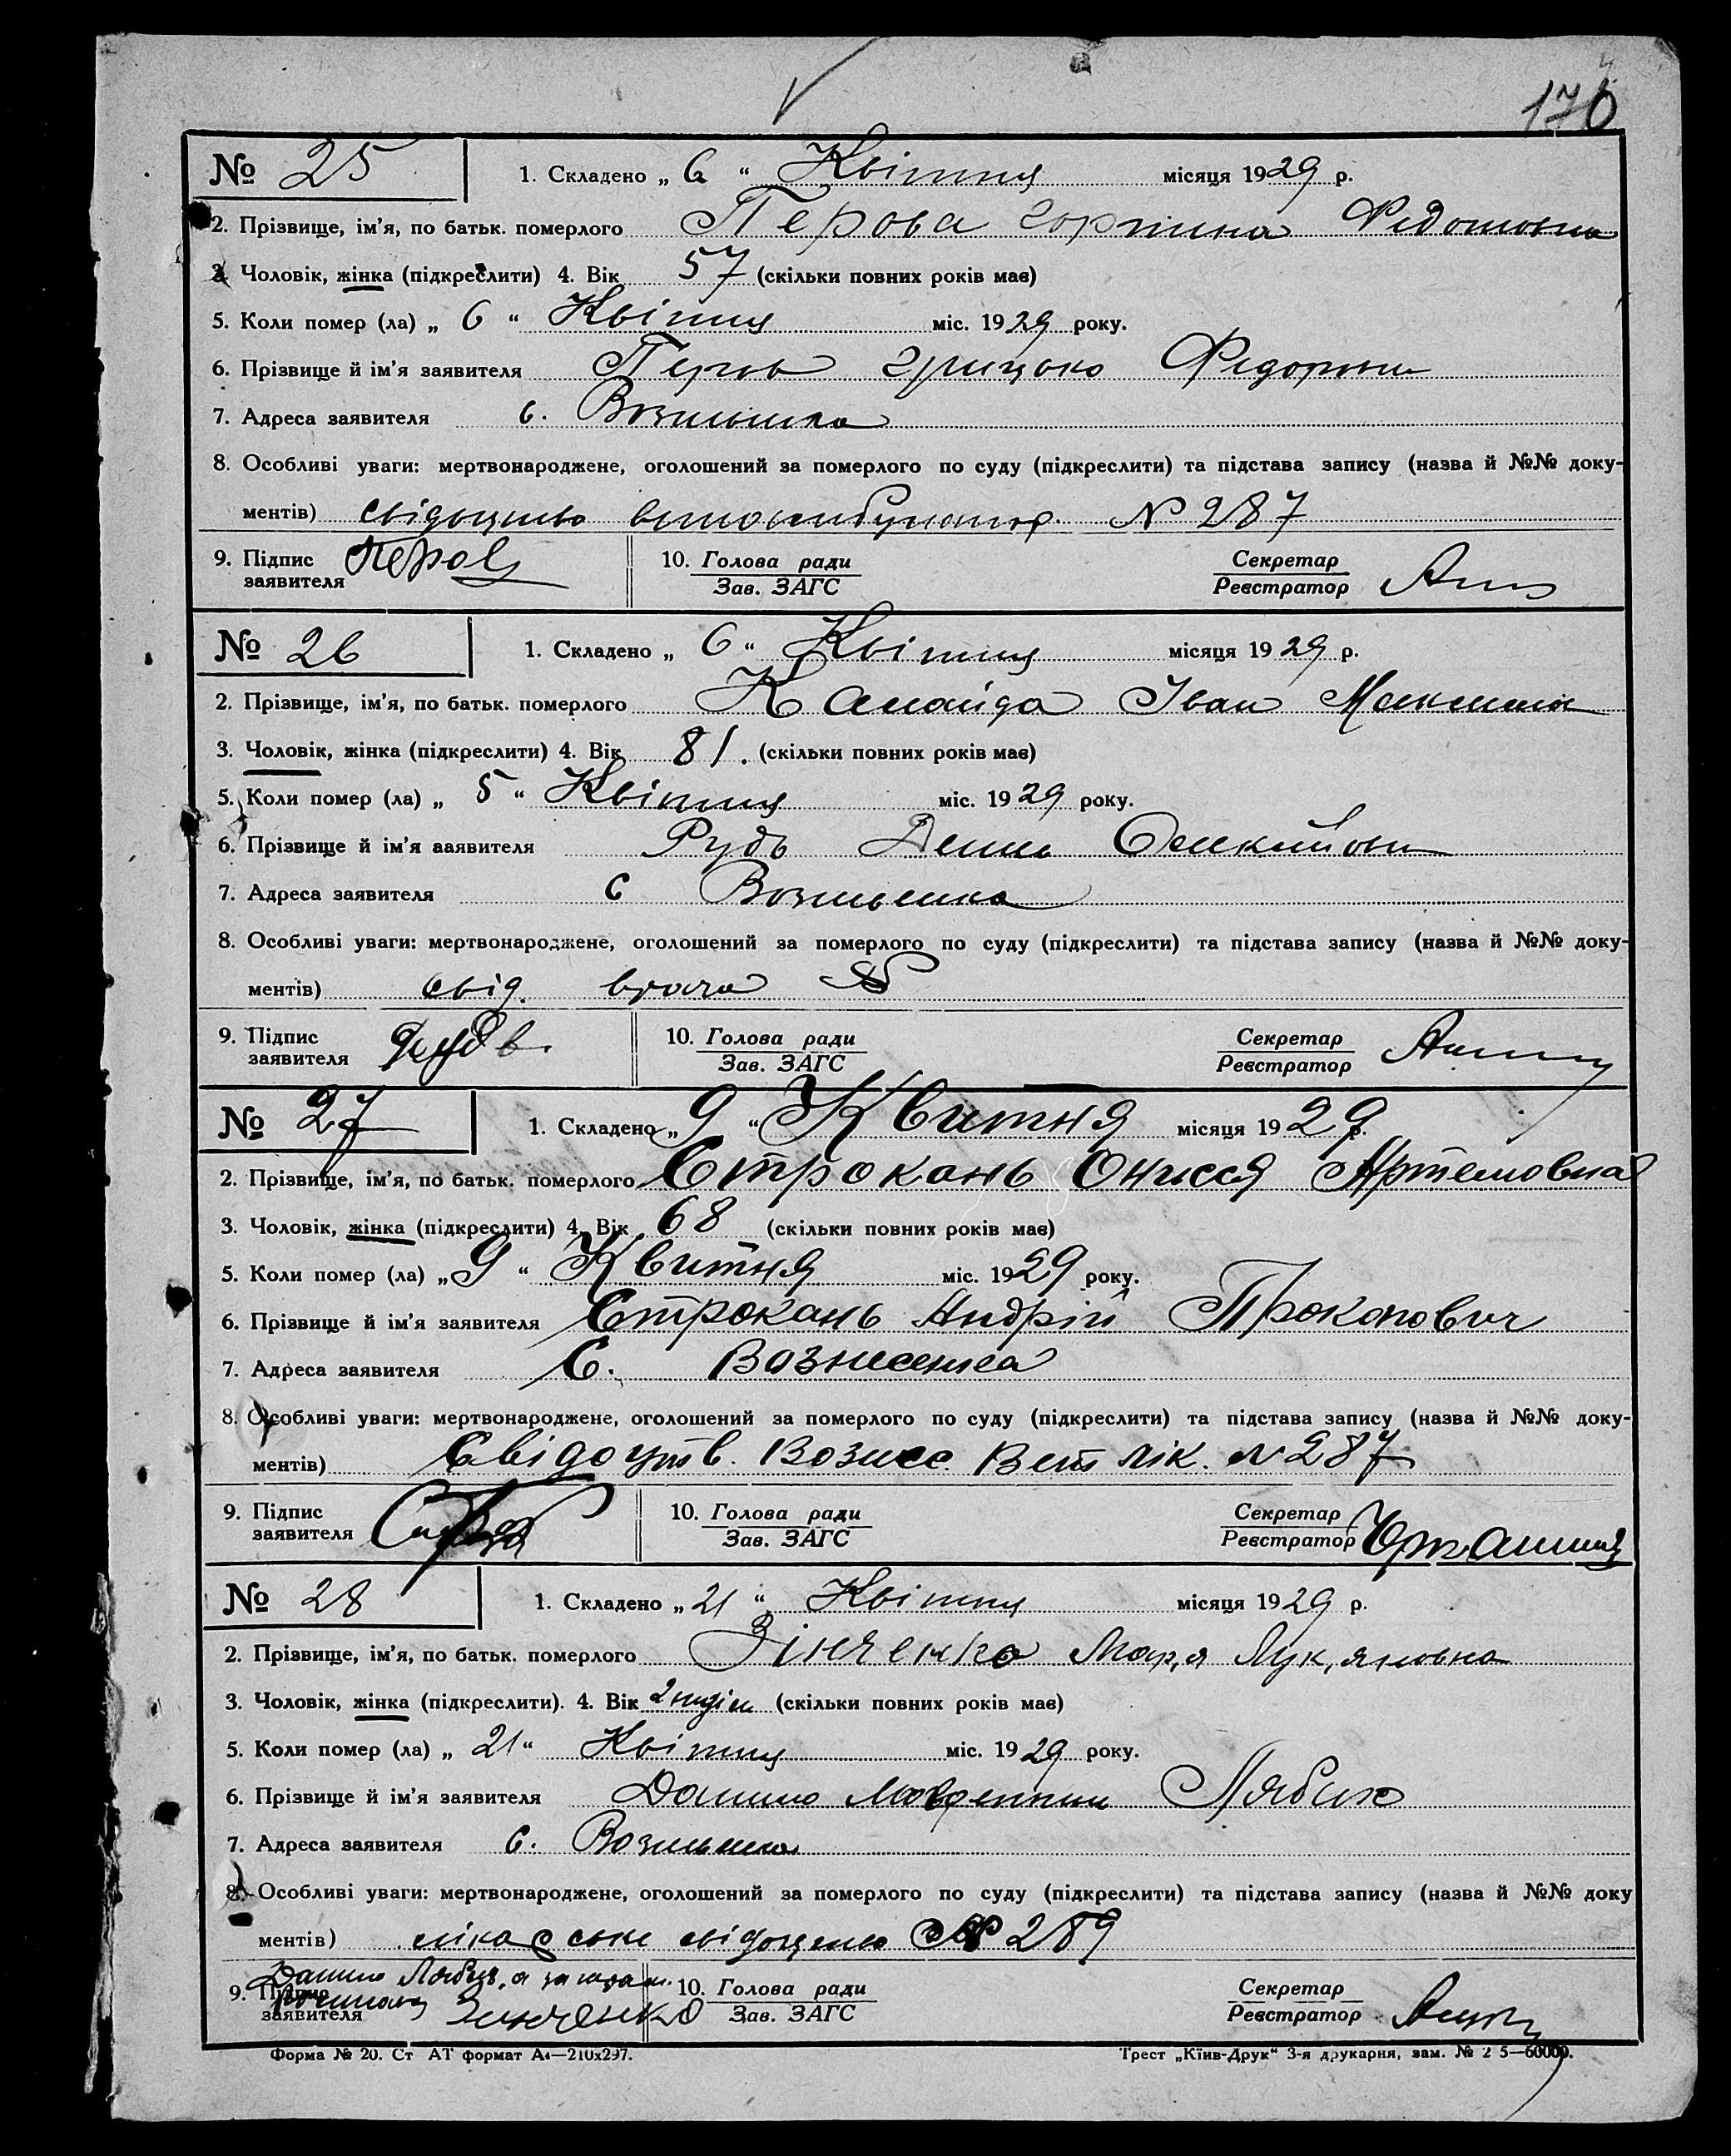 176
№ 25
1. Складено „ 6 “ Квітня місяця 1929 р.
2. Прізвище, ім'я, по батьк. померлого Перова Горпина Федотовна
3. Чоловік, жінка (підкреслити) 4. Вік 57 (скільки повних років має)
5. Коли помер (ла) „ 6 “ Квітня міс. 1929 року.
6. Прізвище й ім'я заявителя Перов Грицько Федорович
7. Адреса заявителя с. Вознесенка
8. Особливі уваги: мертвонароджене, оголошений за померлого по суду (підкреслити) та підстава запису (назва й №№ доку-
ментів) свідоцтво № 287
9. Підпис заявителя Перов 10. Голова ради Секретар
Зав. ЗАГС Реєстратор
№ 26
1. Складено „ 6 “ Квітня місяця 1929 р.
2. Прізвище, ім'я, по батьк. померлого Іван
3. Чоловік, жінка (підкреслити) 4. Вік 81. (скільки повних років має)
5. Коли помер (ла) „ 5 “ Квітня міс. 1929 року.
6. Прізвище й ім'я ааявителя Рудь
7. Адреса заявителя с Вознесенка
8. Особливі уваги: мертвонароджене, оголошений за померлого по суду (підкреслити) та підстава запису (назва й №№ доку-
ментів) свід. врача
9. Підпис заявителя 10. Голова ради Секретар
Зав. ЗАГС Реєстратор
№ 27
1. Складено „ 9 “ Квитня місяця 1929 р.
2. Прізвище, ім'я, по батьк. померлого Строкань Онисся Артемовна
3. Чоловік, жінка (підкреслити) 4. Вік 68 (скільки повних років має)
5. Коли помер (ла) „ 9 “ Квитня міс. 1929 року.
6. Прізвище й ім'я заявителя Строкань Андрій Прокопович
7. Адреса заявителя С. Вознесенка
8. Особливі уваги: мертвонароджене, оголошений за померлого по суду (підкреслити) та підстава запису (назва й №№ доку-
ментів) Свідоцтв. Вознес. Вет лік. № 287
9. Підпис заявителя 10. Голова ради Секретар
Зав. ЗАГС Реєстратор
№ 28
1. Складено „ 21 “ Квітня місяця 1929 р.
2. Прізвище, ім'я, по батьк. померлого Зінченко Мар,я Лук,яновна
3. Чоловік, жінка (підкреслити). 4. Вік 2 неділи (скільки повних років має)
5. Коли помер (ла) „ 21 “ Квітня міс. 1929 року.
6. Прізвище й ім'я заявителя Данило Лябих
7. Адреса заявителя с. Вознесенка
8. Особливі уваги: мертвонароджене, оголошений за померлого по суду (підкреслити) та підстава запису (назва й №№ доку
ментів) лікарське свідоцтво № 289
Данило
9. Підпис заявителя Зинченко 10. Голова ради Секретар
Зав. ЗАГС Реєстратор
Форма № 20. Ст АТ формат А4—210х297. Трест „Київ-Друк“ 3-я друкарня, зам. № 2 5—60000.